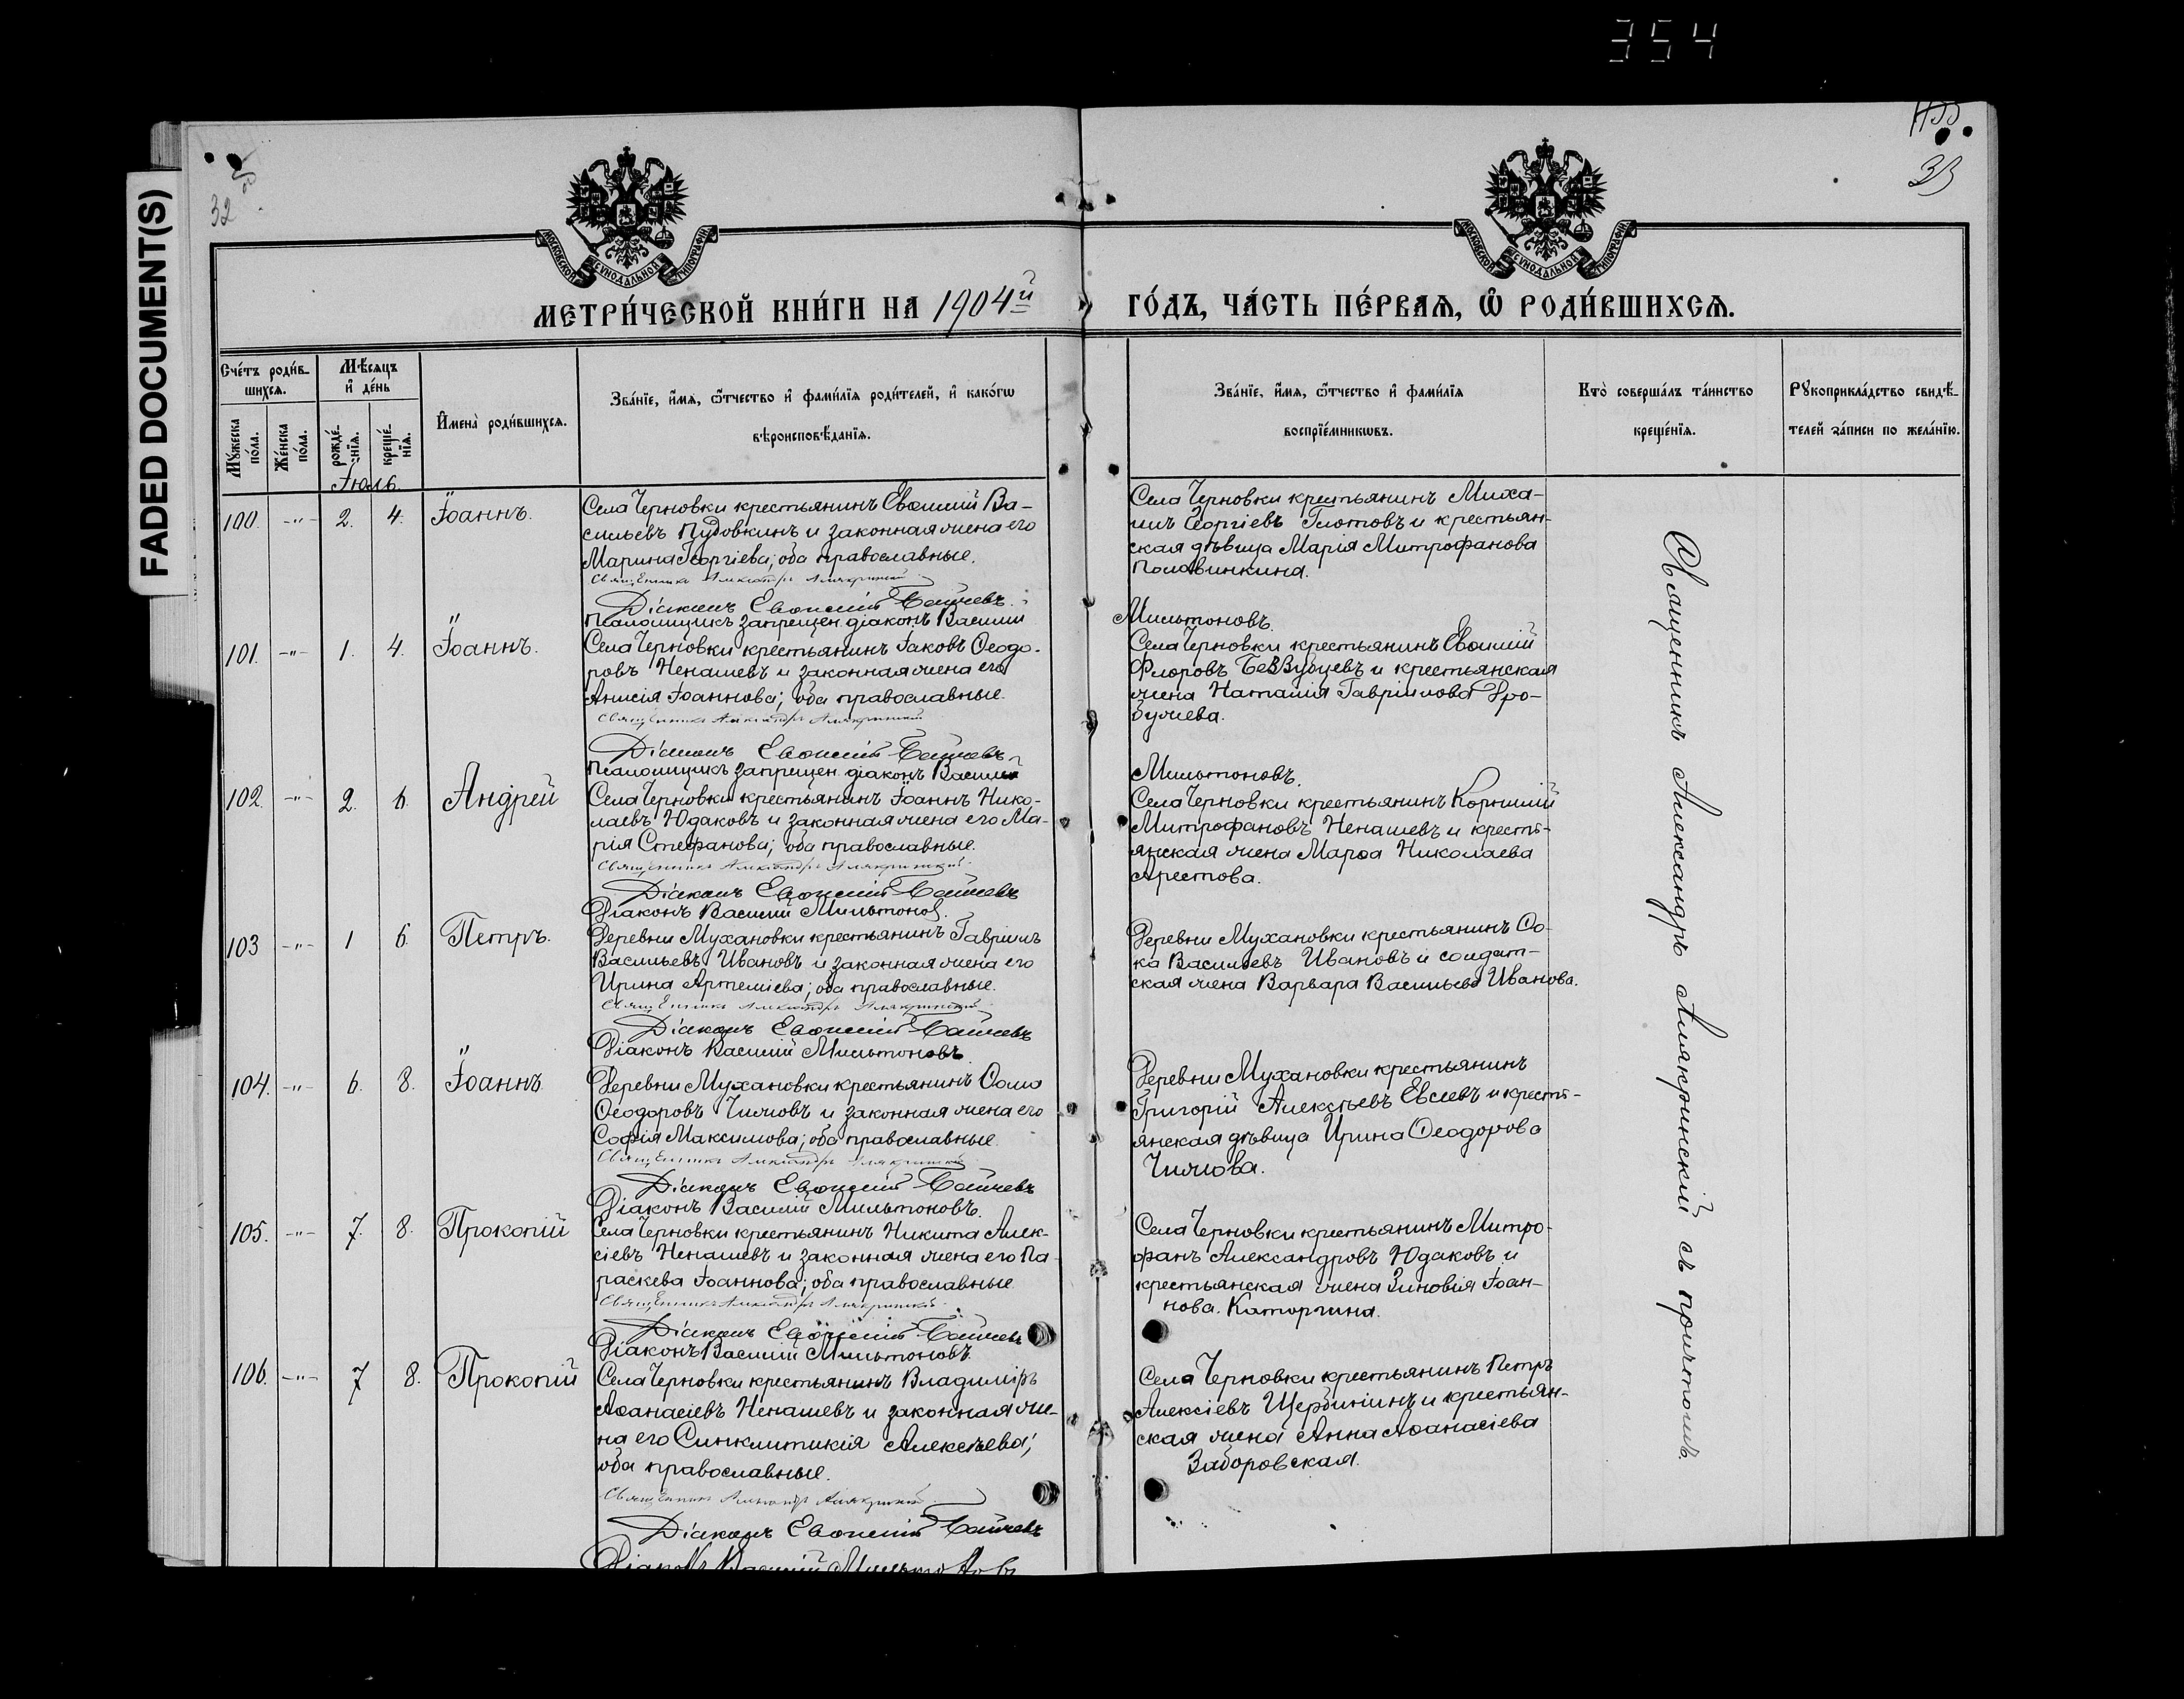 354
FADED DOCUMENT(S)
32
33
МОСКОВСКОЙ СѴНОДАЛЬНОЙ ТИПОГРАФІИ
МОСКОВСКОЙ СѴНОДАЛЬНОЙ ТИПОГРАФІИ
МЕТРИ́ЧЕСКОЙ КНИ́ГИ НА 1904й ГО́ДЪ, ЧА́СТЬ ПЕ́РВАѦ, Ѽ РОДИ́ВШИХСѦ.
Сче́тъ роди́в-
шихсѧ.
Мꙋ́жеска
по́ла.
Же́нска
по́ла.
Мѣ́сѧцъ
и҆ де́нь
рожде́-
нїѧ.
креще́-
нїѧ.
И҆мена̀ роди́вшихсѧ.
Зва́нїе, и҆́мѧ, ѻ҆́тчество и҆ фами́лїѧ роди́телей, и҆ како́гѡ
вѣроисповѣ́данїѧ.
Зва́нїе, и҆́мѧ, ѻ҆́тчество и҆ фами́лїѧ
воспрїе́мникѡвъ.
Кто̀ соверша́лъ та́инство
креще́нїѧ.
Рꙋкоприкла́дство свидѣ́-
телей за́писи по жела́нїю.
Іюль
100. -"- 2. 4. Іоаннъ.
Села Черновки крестьянинъ Евѳимій Ва-
сильевъ Пудовкинъ и законная жена его
Марина Георгіева; оба православные.
Священникъ Александръ Алякринскій
Діаконъ Евѳимій
Псаломщикъ запрещен. діаконъ Василій
Мильтоновъ.
Села Черновки крестьянинъ Миха-
илъ Георгіевъ Глотовъ и крестьян-
ская дѣвица Марія Митрофанова
Половинкина.
101. -"- 1. 4. Іоаннъ.
Села Черновки крестьянинъ Іаковъ Ѳеодо-
ровъ Ненашевъ и законная жена его
Анисія Іоаннова; оба православные.
Священникъ Александръ Алякринскій
Діаконъ Евѳимій
Псаломщикъ запрещен. діаконъ Василій
Мильтоновъ.
Села Черновки крестьянинъ Евѳимій
Флоровъ Беззубцевъ и крестьянская
жена Наталія Гавріилова
102. -"- 2. 6. Андрей
Села Черновки крестьянинъ Іоаннъ Нико-
лаевъ Юдаковъ и законная жена его Ма-
рія Стефанова; оба православные.
Священникъ Александръ Алякринскій.
Діаконъ Евѳимій
Діаконъ Василій Мильтонов.
Села Черновки крестьянинъ Корнилій
Митрофановъ Ненашевъ и кресть-
янская жена Марѳа Николаева
Арестова.
103 -"- 1 6. Петръ.
Деревни Мухановки крестьянинъ Гавріилъ
Васильевъ Ивановъ и законная жена его
Ирина Артеміева; оба православные.
Священникъ Александръ Алякринскій
Діаконъ Евѳимій
Діаконъ Василій Мильтоновъ.
Деревни Мухановки крестьянинъ Ѳо-
ка Васильевъ Ивановъ и солдат-
ская жена Варвара Васильева Иванова.
104. -"- 6. 8. Іоаннъ
Деревни Мухановки крестьянинъ Ѳома
Ѳеодоровъ Чижовъ и законная жена его
Софія Максимова; оба православные.
Священникъ Александръ Алякринскій
Діаконъ Евѳимій
Діаконъ Василій Мильтоновъ.
Деревни Мухановки крестьянинъ
Григорій Алексѣевъ Евсеевъ и кресть-
янская дѣвица Ирина Ѳеодорова
Чижова.
105. -"- 7. 8. Прокопій
Села Черновки крестьянинъ Никита Алек-
сіевъ Ненашевъ и законная жена его Па-
раскева Іоаннова; оба православные
Священникъ Александръ Алякринскій.
Діаконъ Евѳимій
Діаконъ Василій Мильтоновъ.
Села Черновки крестьянинъ Митро-
фанъ Александровъ Юдаковъ и
крестьянская жена Зиновія Іоан-
нова. Каторгина.
106. -"- 7 8. Прокопій
Села Черновки крестьянинъ Владиміръ
Аѳанасіевъ Ненашевъ и законная же-
на его Синклитикія Алексѣева;
оба православные.
Священникъ Александръ Алякринскій
Діаконъ Евѳимій
Діаконъ Василій Мильтоновъ
Села Черновки крестьянинъ Петръ
Алексіевъ Щербининъ и крестьян-
ская жена Анна Аѳанасіева
Заборовская.
Священникъ Александръ Алякринскій съ причтомъ.